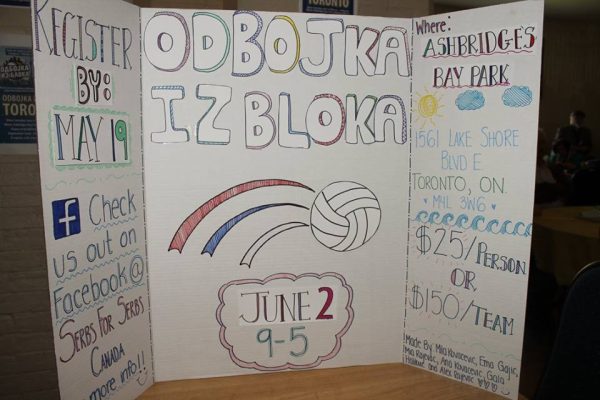 REGISTER
BY:
MAY 19
f Check
us out on
Facebook@
SERBS FOR SERBS
CANADA
more info!!
ODBOJKA
IZ BLOKA
JUNE 2
9-5
Where:
ASHBRIDGES
BAY PARK
1561 LAKE SHORE
BLVD E
TORONTO, ON.
M4L 3W6
$25/PERSON
OR
$150/TEAM
Made By: Mila Kovacevic, Ema Gajic,
Mia Rajevic, Ana Kovacevic, Gala
and Alex Rajevic
TORONTO
ODBOJKA
IZ BLOKA
ODBOJKA
TORO